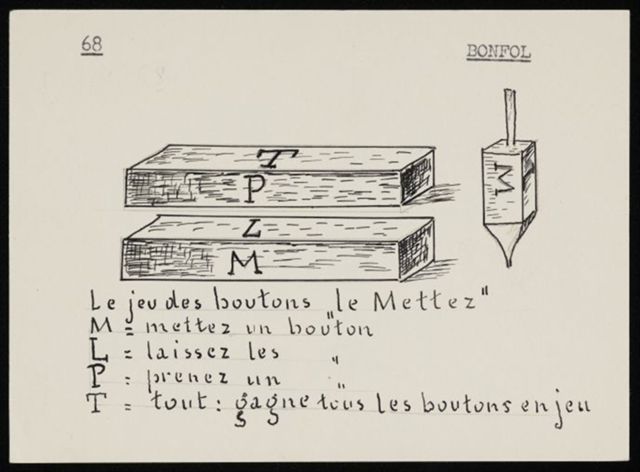 68
BONFOL
T
P
L
M
M
Le jeu des boutons "le Mettez"
M = mettez un bouton
L = laissez les "
P = prenez un "
T = tout : gagne tous les boutons en jeu